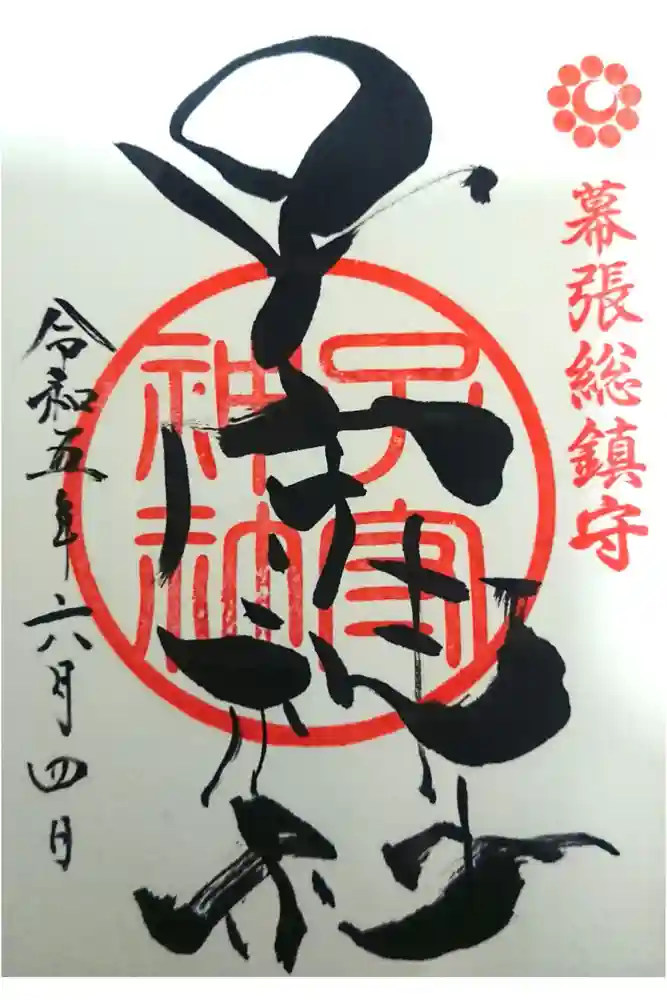 幕張総鎮守
子守神社
子守
神社
令和五年六月四日